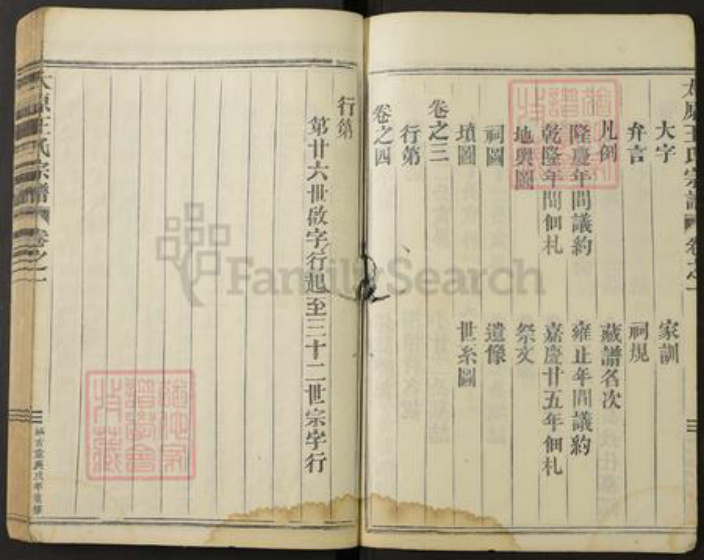 太原王氏宗譜 卷之一
大字 家訓
弁言 祠規
凡例 藏譜名次
隆慶年間議約 雍正年間議約
乾隆年間佃札 嘉慶廿五年佃札
地輿圖 祭文
祠圖 遺像
墳圖 世系圖
卷之三
行第
卷之四
行第
第廿六世啟字行起至三十二世宗字行
太原王氏宗譜 卷之一
FamilySearch